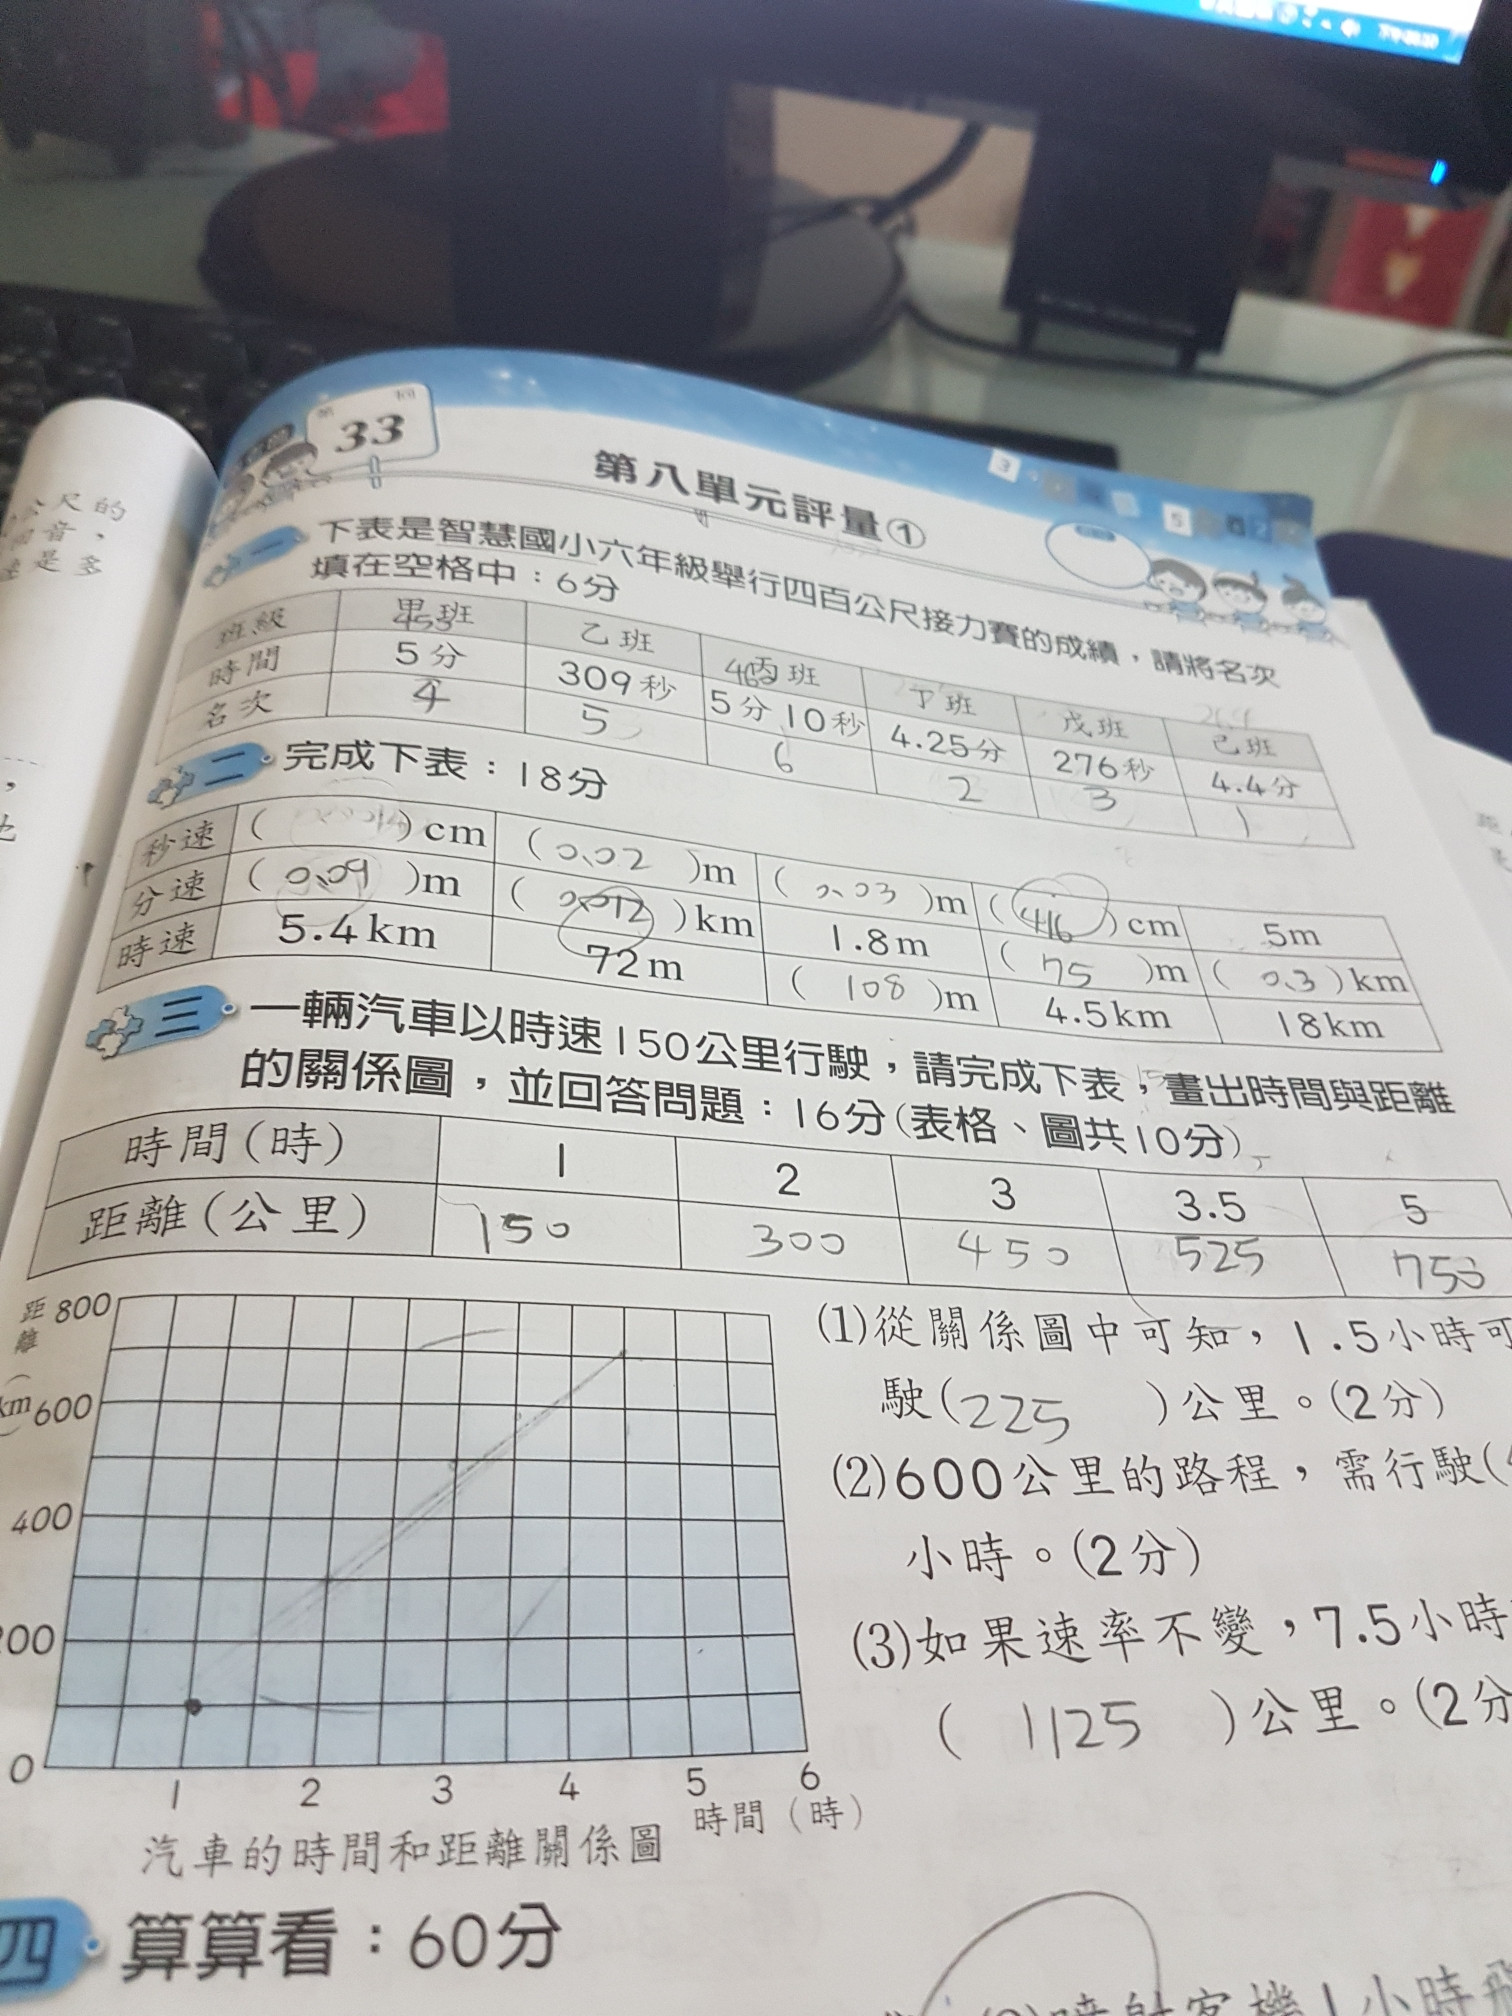 公尺的
音，
是多
第 回
33
第八單元評量①
一 下表是智慧國小六年級舉行四百公尺接力賽的成績，請將名次
填在空格中：6分
班級 甲班 乙班 丙班 丁班 戊班 己班
時間 5分 309秒 5分10秒 4.25分 276秒 4.4分
名次 4 5 6 2 3 1
二 完成下表：18分
秒速 ( )cm (0.02)m (0.03)m (416)cm 5m
分速 (0.09)m (0.012)km 1.8m (75)m (0.3)km
時速 5.4km 72m (108)m 4.5km 18km
三 一輛汽車以時速150公里行駛，請完成下表，畫出時間與距離
的關係圖，並回答問題：16分(表格、圖共10分)
時間(時) 1 2 3 3.5 5
距離(公里) 150 300 450 525 750
距離(km)
800
600
400
200
0
1 2 3 4 5 6
時間(時)
汽車的時間和距離關係圖
(1)從關係圖中可知，1.5小時可
駛(225)公里。(2分)
(2)600公里的路程，需行駛(
小時。(2分)
(3)如果速率不變，7.5小時
(1125)公里。(2分
四 算算看：60分
噴射客機1小時飛